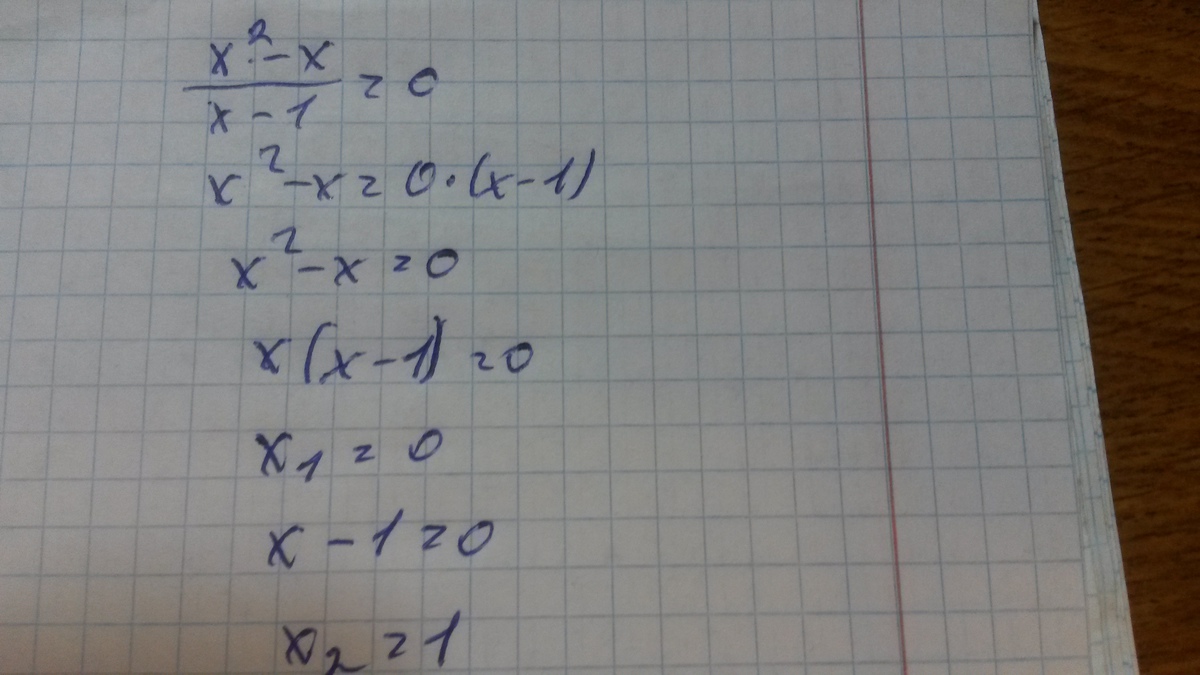 x² - x
x - 1 = 0
x² - x = 0 · (x - 1)
x² - x = 0
x (x - 1) = 0
x₁ = 0
x - 1 = 0
x₂ = 1